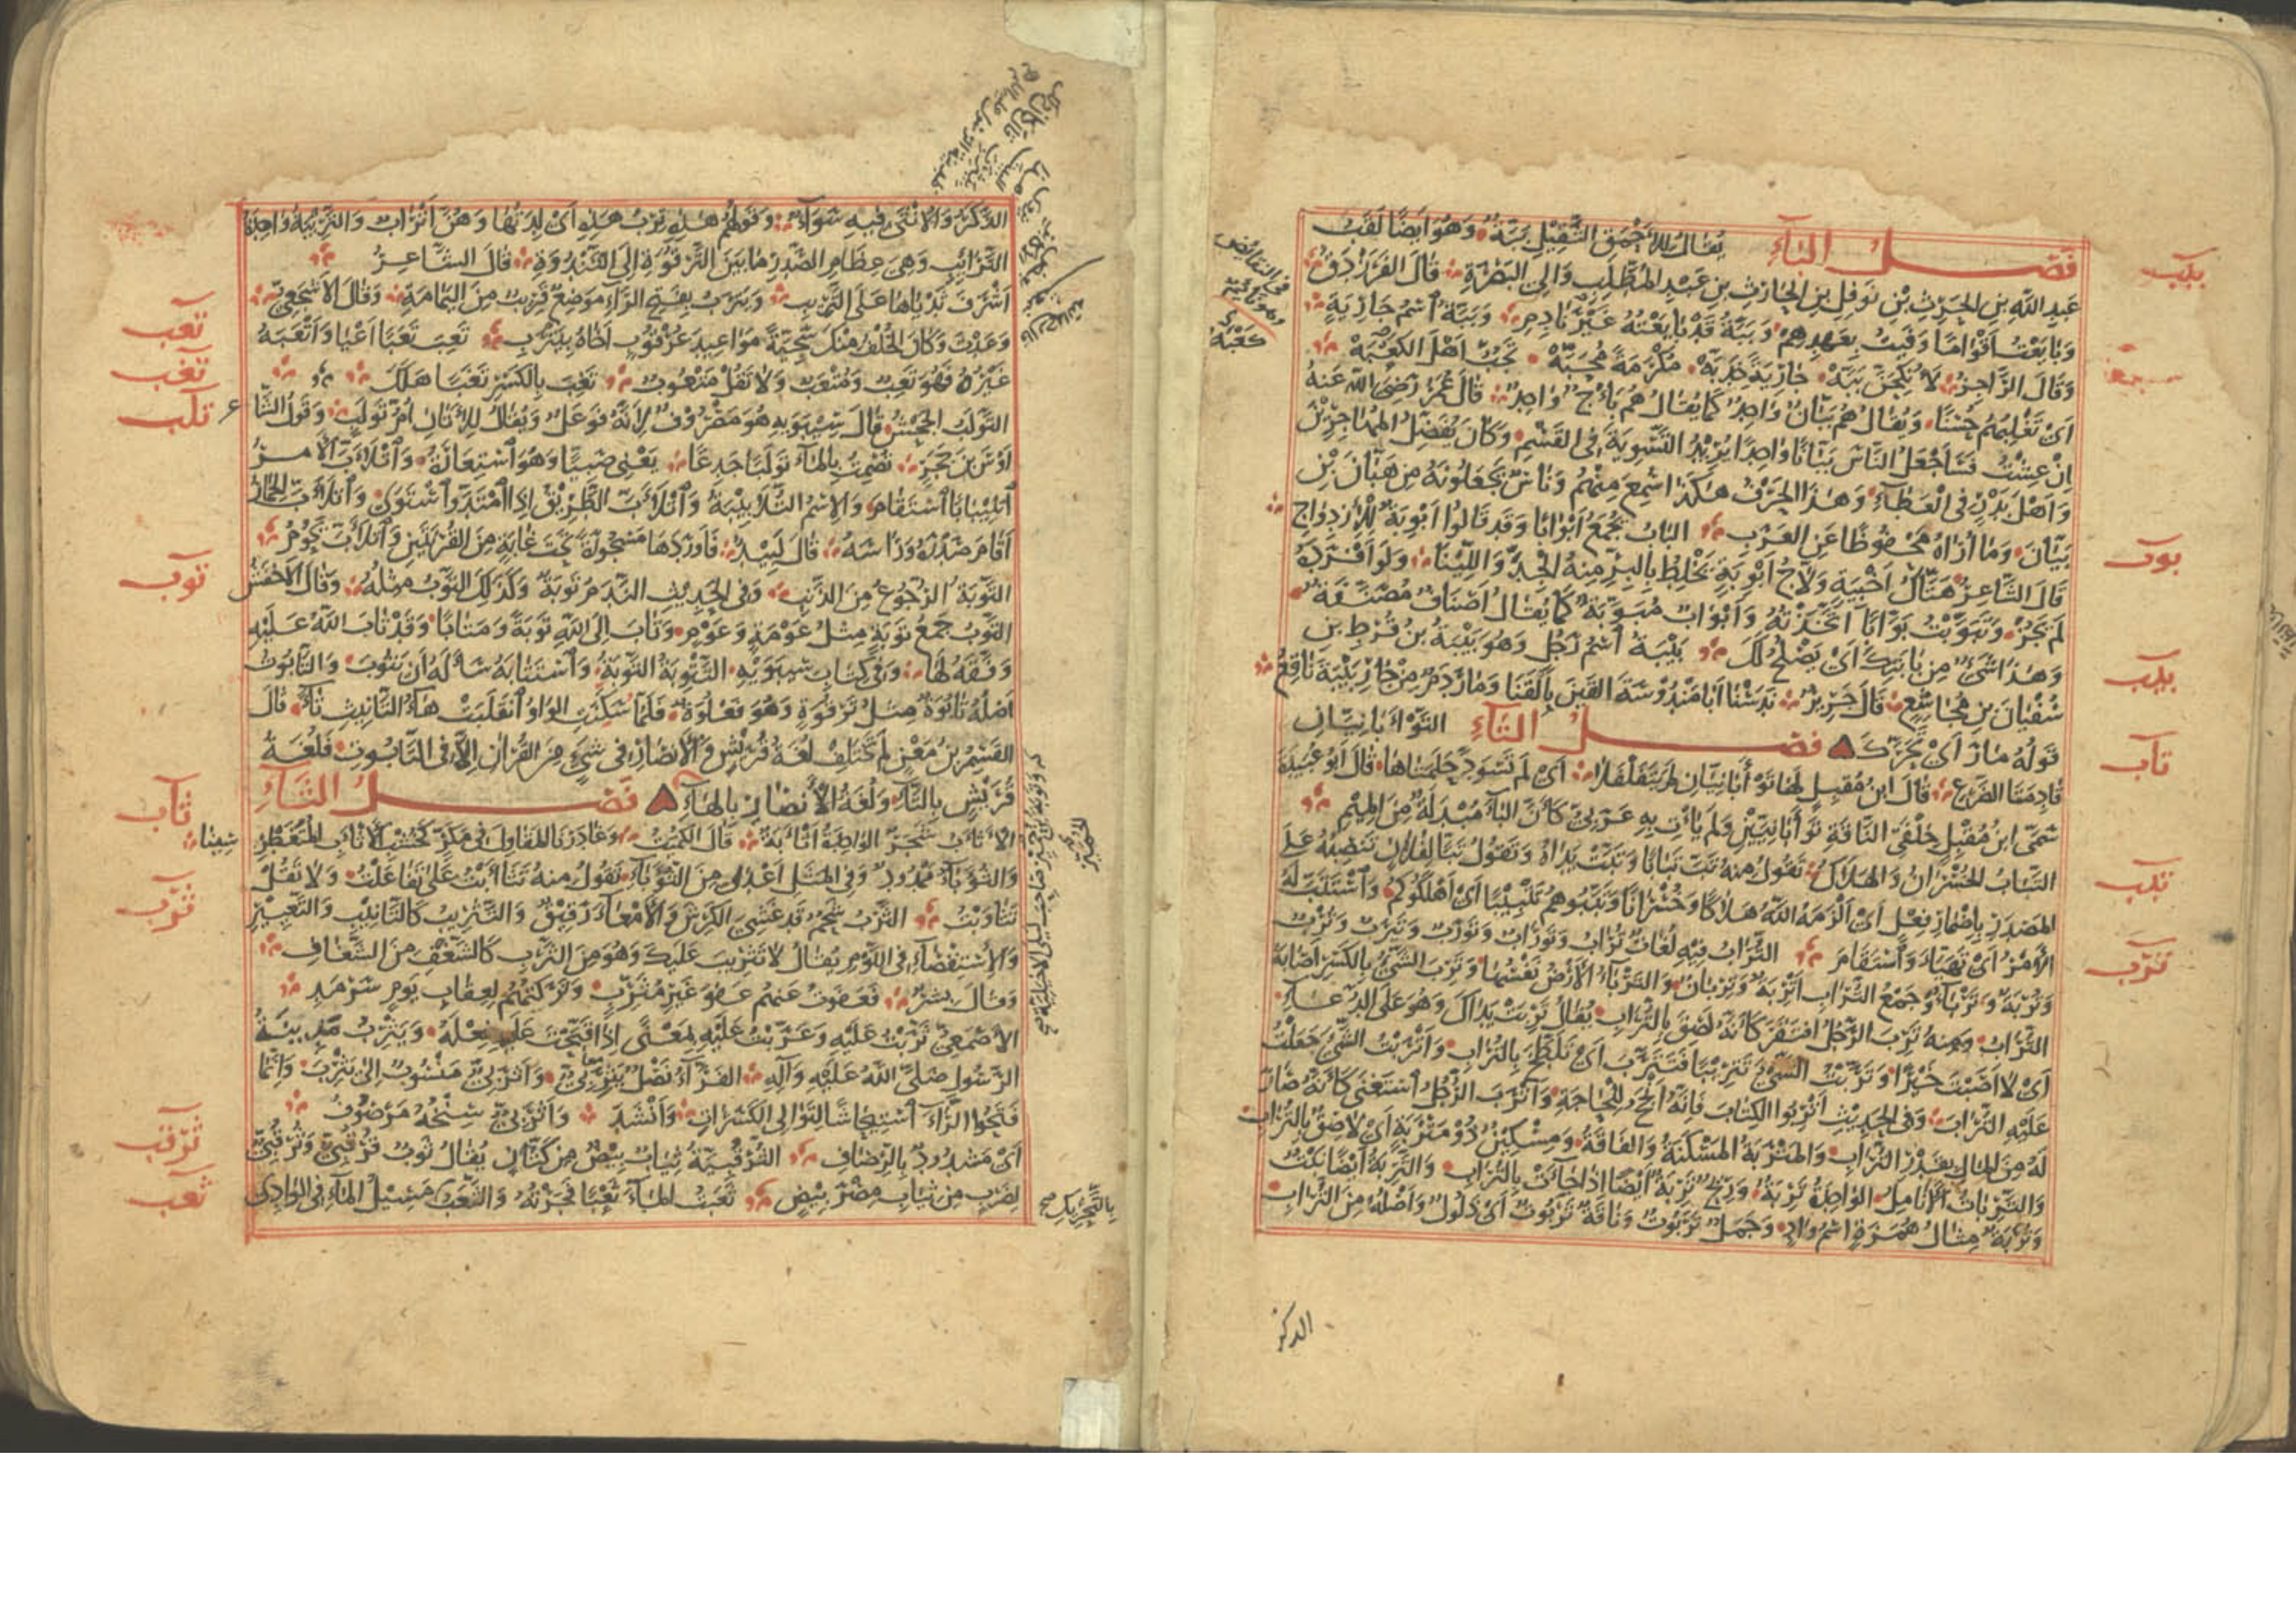 فصل الباء يقال للأحمق الثقيل ببة وهو أيضا لقب
عبد الله بن الحرث بن نوفل بن الحارث بن عبد المطلب والي البصرة قال الفرزدق
وبايعت أقواما وفيت بعهدهم وببة قد بايعته غير نادم وببة اسم جارية
وقال الراجز لأنكحن ببه جارية خدبه مكرمة محبه تجب أهل الكعبه
أي تغلبهم حسنا ويقال هم ببان واحد كما يقال هم بأج واحد قال عمر رضي الله عنه
إن عشت فسأجعل الناس ببانا واحدا يريد التسوية في القسم وكان يفضل المهاجرين
وأهل بدر في العطاء وهذا الحرف هكذا اسمع منهم وناس يجعلونه من هيان بن
بيان وما أراه محفوظا عن العرب الباب يجمع أبوابا وقد قالوا أبوبة للازدواج
قال الشاعر هتاك أخبية ولاج أبوبة يخلط بالبر منه الجد واللينا ولو أفرده
لم يجز وتبوبت بوابا اتخذته وأبواب مبوبة كما يقال أصناف مصنفة
وهذا شيء من بابتك أي يصلح لك بيبة اسم رجل وهو بيبة بن قرط بن
سفيان بن مجاشع قال جرير ندسنا أبا مندوسة القين بالقنا ومار دم من جار بيبة ناقع
قوله مار أي تحرك فصل التاء التوأبانيان
قادمتا الضرع قال ابن مقبل لها توأبانيان لم يتفلفلا أي لم تسود حلمتاها قال أبو عبيدة
سمى ابن مقبل خلفي الناقة توأبانيين ولم يأت به عربي كأن الباء مبدلة من الميم
التباب الخسران والهلاك تقول منه تب تبابا وتبت يداه وتقول تبا لفلان تنصبه على
المصدر بإضمار فعل أي ألزمه الله هلاكا وخسرانا وتببوهم تتبيبا أي أهلكوهم واستتب له
الأمر أي تهيأ واستقام التراب فيه لغات تراب وتوراب وتورب وتيرب وترب
وتربة وترباء وجمع التراب أتربة وتربان والترباء الأرض نفسها وترب الشيء بالكسر أصابه
التراب ومنه ترب الرجل افتقر كأنه لصق بالتراب يقال تربت يداك وهو على الدعاء
أي لا أصبت خيرا وتربت الشيء تتريبا فتترب أي تلطخ بالتراب وأتربت الشيء جعلت
عليه التراب وفي الحديث أتربوا الكتاب فإنه أنجح للحاجة وأترب الرجل استغنى كأنه صار
له من المال بقدر التراب والمتربة المسكنة والفاقة ومسكين ذو متربة أي لاصق بالتراب
والتربات الأنامل الواحدة تربة وريح تربة أيضا إذا جاءت بالتراب والتربة أيضا نبت
وتربة مثال همزة اسم واد وجمل تربوت وناقة تربوت أي ذلول وأصله من التراب
الذكر
ببب
بوب
بيب
تأب
تبب
ترب
الذكر والأنثى فيه سواء وقولهم هذه ترب هذه أي لدتها وهن أتراب والتريبة واحدة
الترائب وهي عظام الصدر ما بين الترقوة إلى الثندوة قال الشاعر
أشرف ثدياها على التريب ويترب بفتح الراء موضع قريب من اليمامة وقال الأشجعي
وعدت وكان الخلف منك سجية مواعيد عرقوب أخاه بيترب تعب تعبا أعيا وأتعبه
غيره فهو تعب ومتعب ولا تقل متعوب تغب بالكسر تغبا هلك
التولب الجحش قال سيبويه هو مصروف لأنه فوعل ويقال للأتان أم تولب وقول الشاعر
أوس بن حجر تصمت بالماء تولبا جدعا يعني صبيا وهو استعارة واتلأب الأمر
اتلئبابا استقام والاسم التلأبيبة واتلأب الطريق إذا امتد واستوى واتلأب الحمار
أقام صدره ورأسه قال لبيد فأوردها مسجورة تحت غابة من القرنتين واتلأب يحوم
التوبة الرجوع من الذنب وفي الحديث الندم توبة وكذلك التوب مثله وقال الأخفش
التوب جمع توبة مثل عومة وعوم وتاب إلى الله توبة ومتابا وقد تاب الله عليه
وفقه لها وفي كتاب سيبويه التتوبة التوبة واستتابه سأله أن يتوب والتابوت
أصله تابوة مثل ترقوة وهو فعلوة فلما سكنت الواو انقلبت هاء التأنيث تاء قال
القسم بن معن لم تختلف لغة قريش والأنصار في شيء من القرآن إلا في التابوت فلغة
قريش بالتاء ولغة الأنصار بالهاء فصل الثاء
الأثأب شجر الواحدة أثأبة قال الكميت وغادرنا المقاول في مكر كخشب الأثأب المتغطرسينا
والثؤباء ممدود وفي المثل أعدى من الثؤباء تقول منه تثاءبت على تفاعلت ولا تقل
تثاوبت الثرب شحم قد غشي الكرش والأمعاء رقيق والتثريب كالتأنيب والتعيير
والاستقصاء في اللوم يقال لا تثريب عليك وهو من الثرب كالشغف من الشغاف
وقال بشر فعفوت عنهم عفو غير مثرب وتركتهم لعقاب يوم سرمد
الأصمعي ثربت عليه وعربت عليه بمعنى إذا قبحت عليه فعله ويثرب مدينة
الرسول صلى الله عليه وآله الفراء نصل يثربي وأثربي منسوب إلى يثرب وإنما
فتحوا الراء استيحاشا لتوالي الكسرات وأنشد وأثربي سنخه مرصوف
أي مشدود بالرصاف الثرقبية ثياب بيض من كتان يقال ثوب ثرقبي وفرقبي
لضرب من ثياب مصر بيض ثعبت الماء ثعبا فجرته والثعب مسيل الماء في الوادي
بالتحريك صح
تعب
تغب
تلب
توب
ثأب
ثرب
ثرقب
ثعب